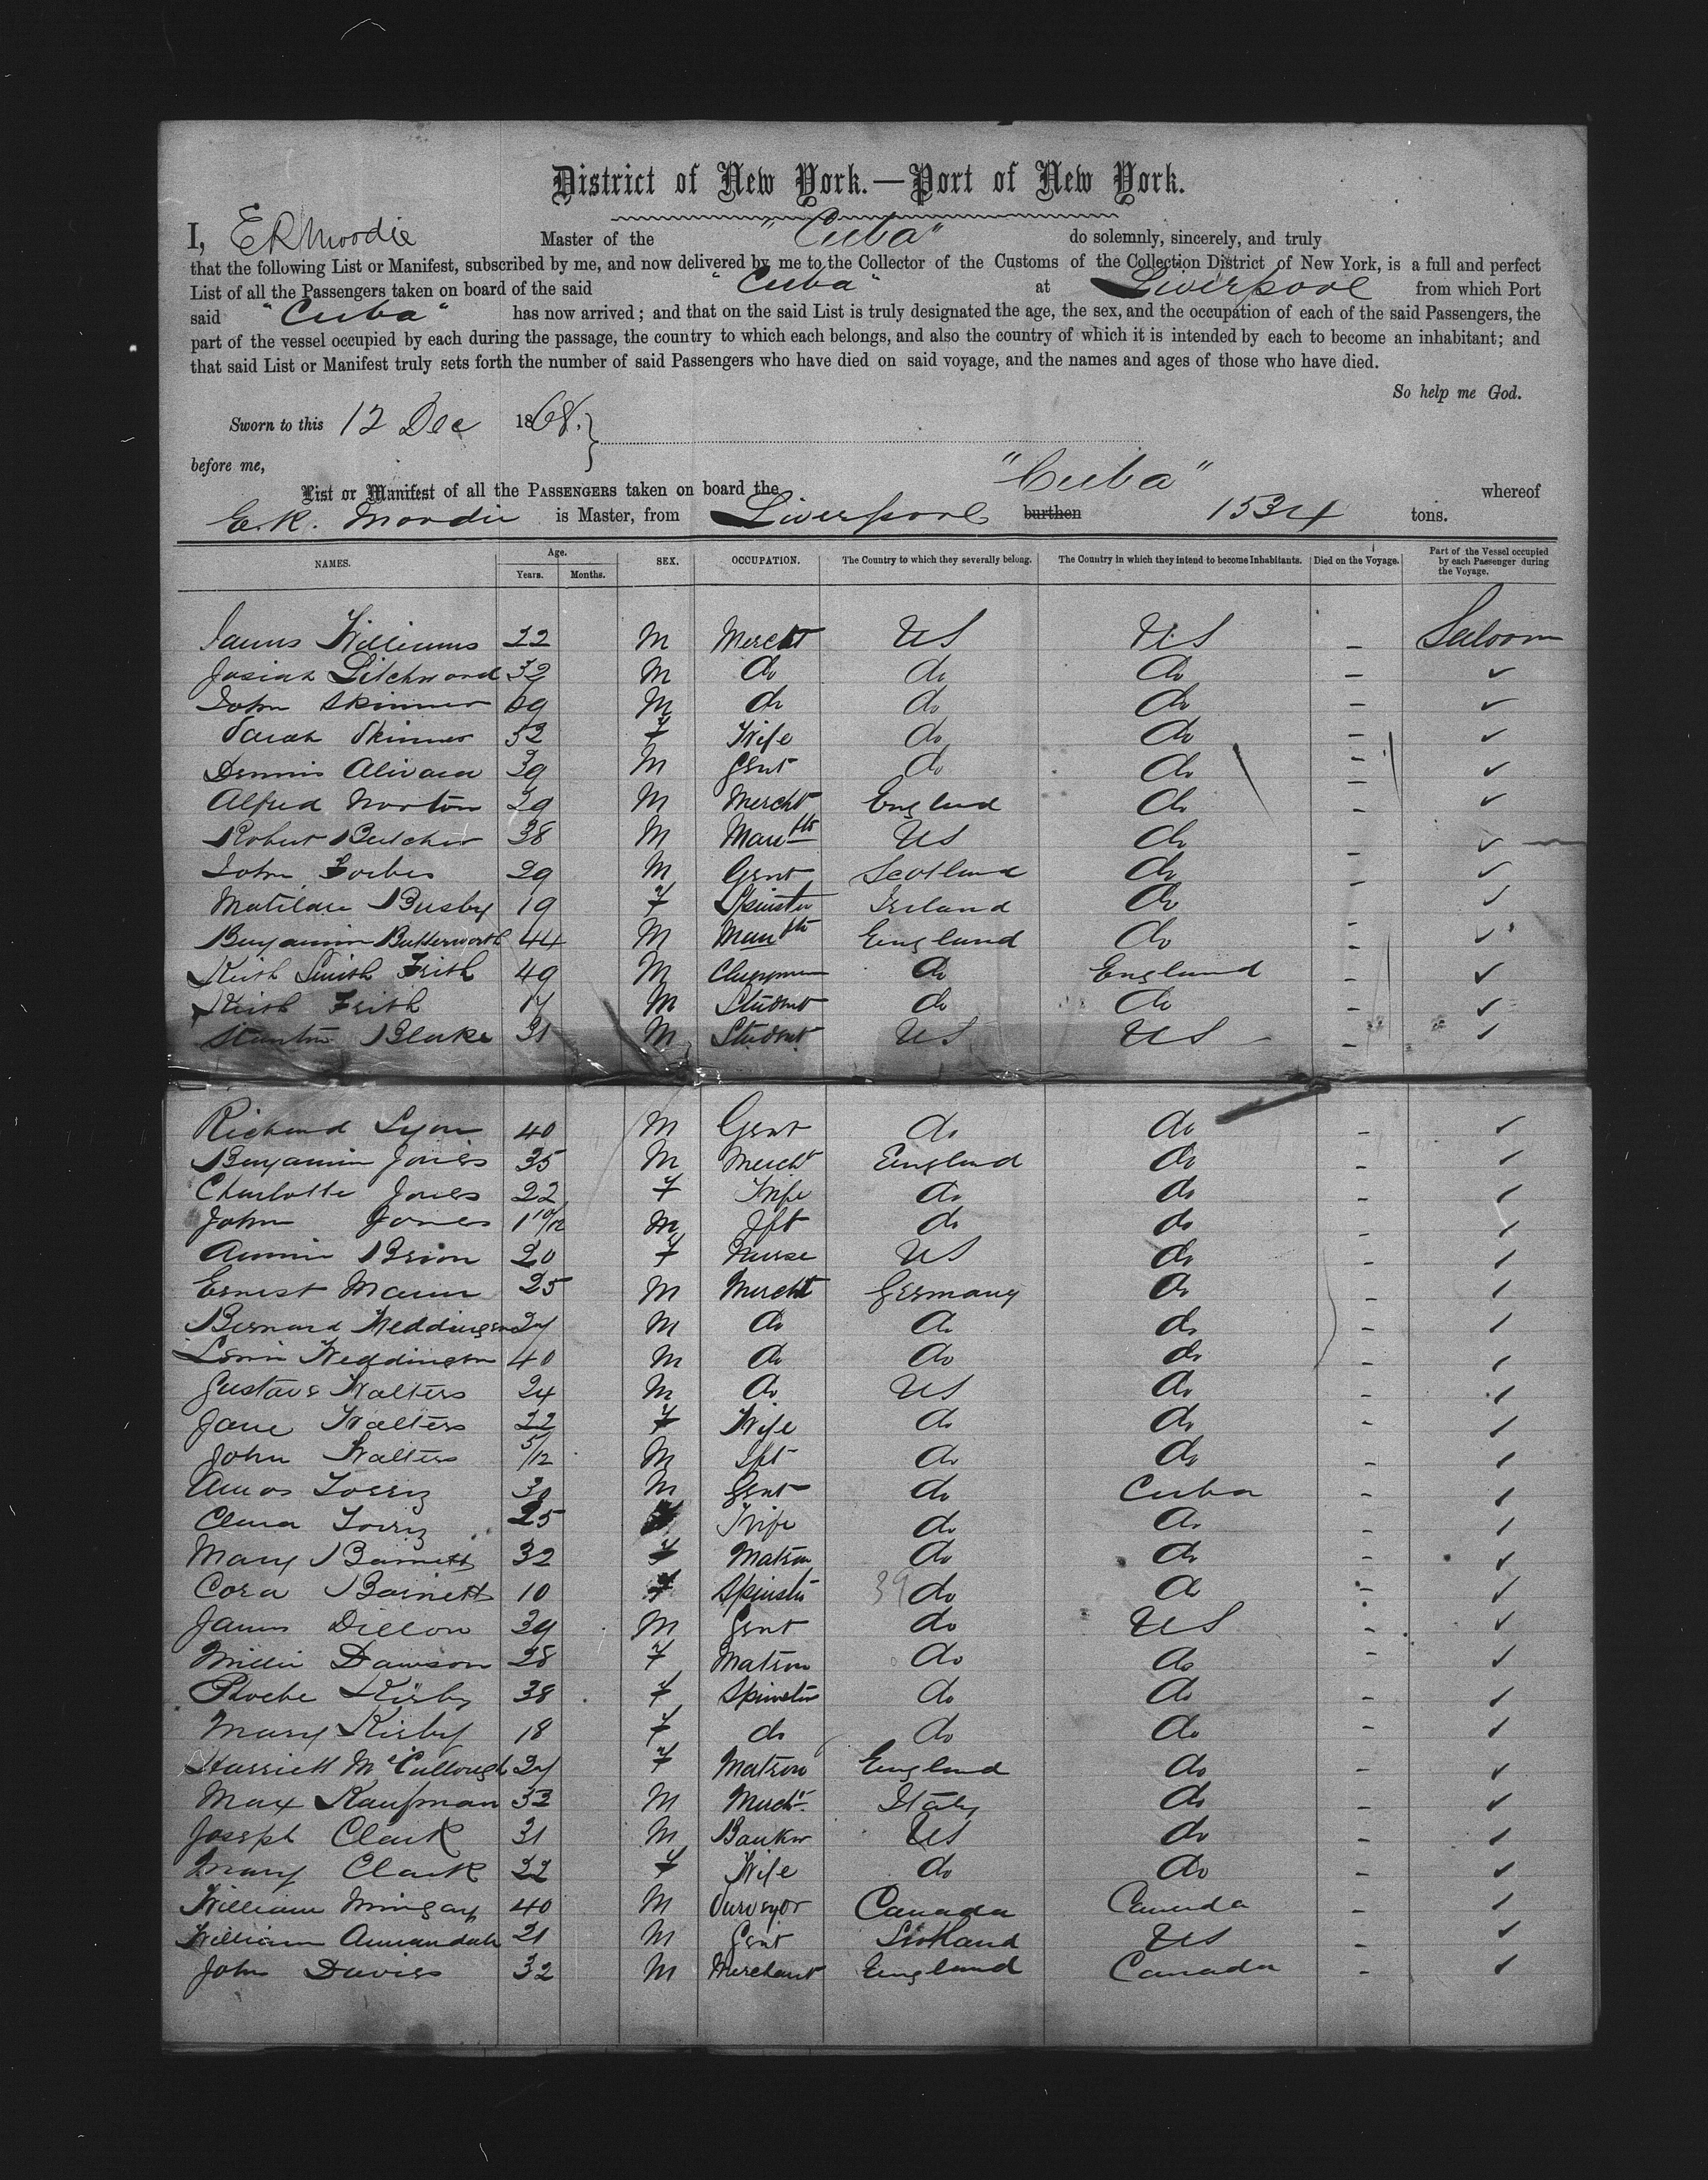 District of New York.—Port of New York.
I, E R Moodie Master of the "Cuba" do solemnly, sincerely, and truly
that the following List or Manifest, subscribed by me, and now delivered by me to the Collector of the Customs of the Collection District of New York, is a full and perfect
List of all the Passengers taken on board of the said "Cuba" at Liverpool from which Port
said "Cuba" has now arrived; and that on the said List is truly designated the age, the sex, and the occupation of each of the said Passengers, the
part of the vessel occupied by each during the passage, the country to which each belongs, and also the country of which it is intended by each to become an inhabitant; and
that said List or Manifest truly sets forth the number of said Passengers who have died on said voyage, and the names and ages of those who have died.
So help me God.
Sworn to this 12 Dec 1868.
before me,
List or Manifest of all the PASSENGERS taken on board the "Cuba" whereof
E. R. Moodie is Master, from Liverpool burthen 1534 tons.
NAMES. Age. Years. Months. SEX. OCCUPATION. The Country to which they severally belong. The Country in which they intend to become Inhabitants. Died on the Voyage. Part of the Vessel occupied by each Passenger during the Voyage.
James Williams 22 M Mercht US US - Saloon
Josiah 32 M do do do - ✓
John Skinner M do do do - ✓
Sarah Skinner 52 F Wife do do - ✓
Dennis 39 M Gent do do - ✓
Alfred Norton 29 M Mercht England do - ✓
Robert Butcher 38 M US do - ✓
John Forbes 29 M Gent Scotland do - ✓
Matilda Busby 19 F Spinster Ireland do - ✓
Benjamin Butterworth 44 M England do - ✓
Keith Smith Frith 49 M do England - ✓
Keith Frith 17 M Student do do - ✓
Stanton Blake 31 M Student US US - ✓
Richard Lyon 40 M Gent do do - ✓
Benjamin Jones 35 M Mercht England do - ✓
Charlotte Jones 22 F Wife do do - ✓
John Jones 1 10/12 M Ift do do - ✓
Annie Brion 20 F Nurse US do - ✓
Ernest Mann 25 M Mercht Germany do - ✓
Bernard Weddingen 27 M do do do - ✓
Weddingen 40 M do do do - ✓
Gustave Walters 24 M do US do - ✓
Jane Walters 22 F Wife do do - ✓
John Walters 5/12 M Ift do do - ✓
Amos 30 M Gent do Cuba - ✓
Clara 25 F Wife do do - ✓
Mary Barnett 32 F Matron do do - ✓
Cora Barnett 10 F Spinster 39 do do - ✓
James Dillon 39 M Gent do US - ✓
Millie Dawson 28 F Matron do do - ✓
Phoebe Kirby 38 F Spinster do do - ✓
Mary Kirby 18 F do do do - ✓
Harriett McCullough 27 F Matron England do - ✓
Max Kaufman 33 M Mercht. Italy do - ✓
Joseph Clark 31 M Banker US do - ✓
Mary Clark 22 F Wife do do - ✓
William Mingay 40 M Surveyor Canada Canada - ✓
William Annandale 21 M Gent Scotland US - ✓
John Davies 32 M Merchant England Canada - ✓